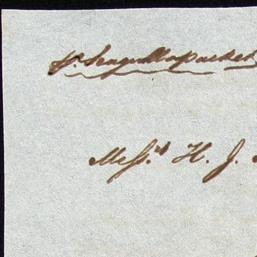 pr. Seagull packet
Messrs. H. J.